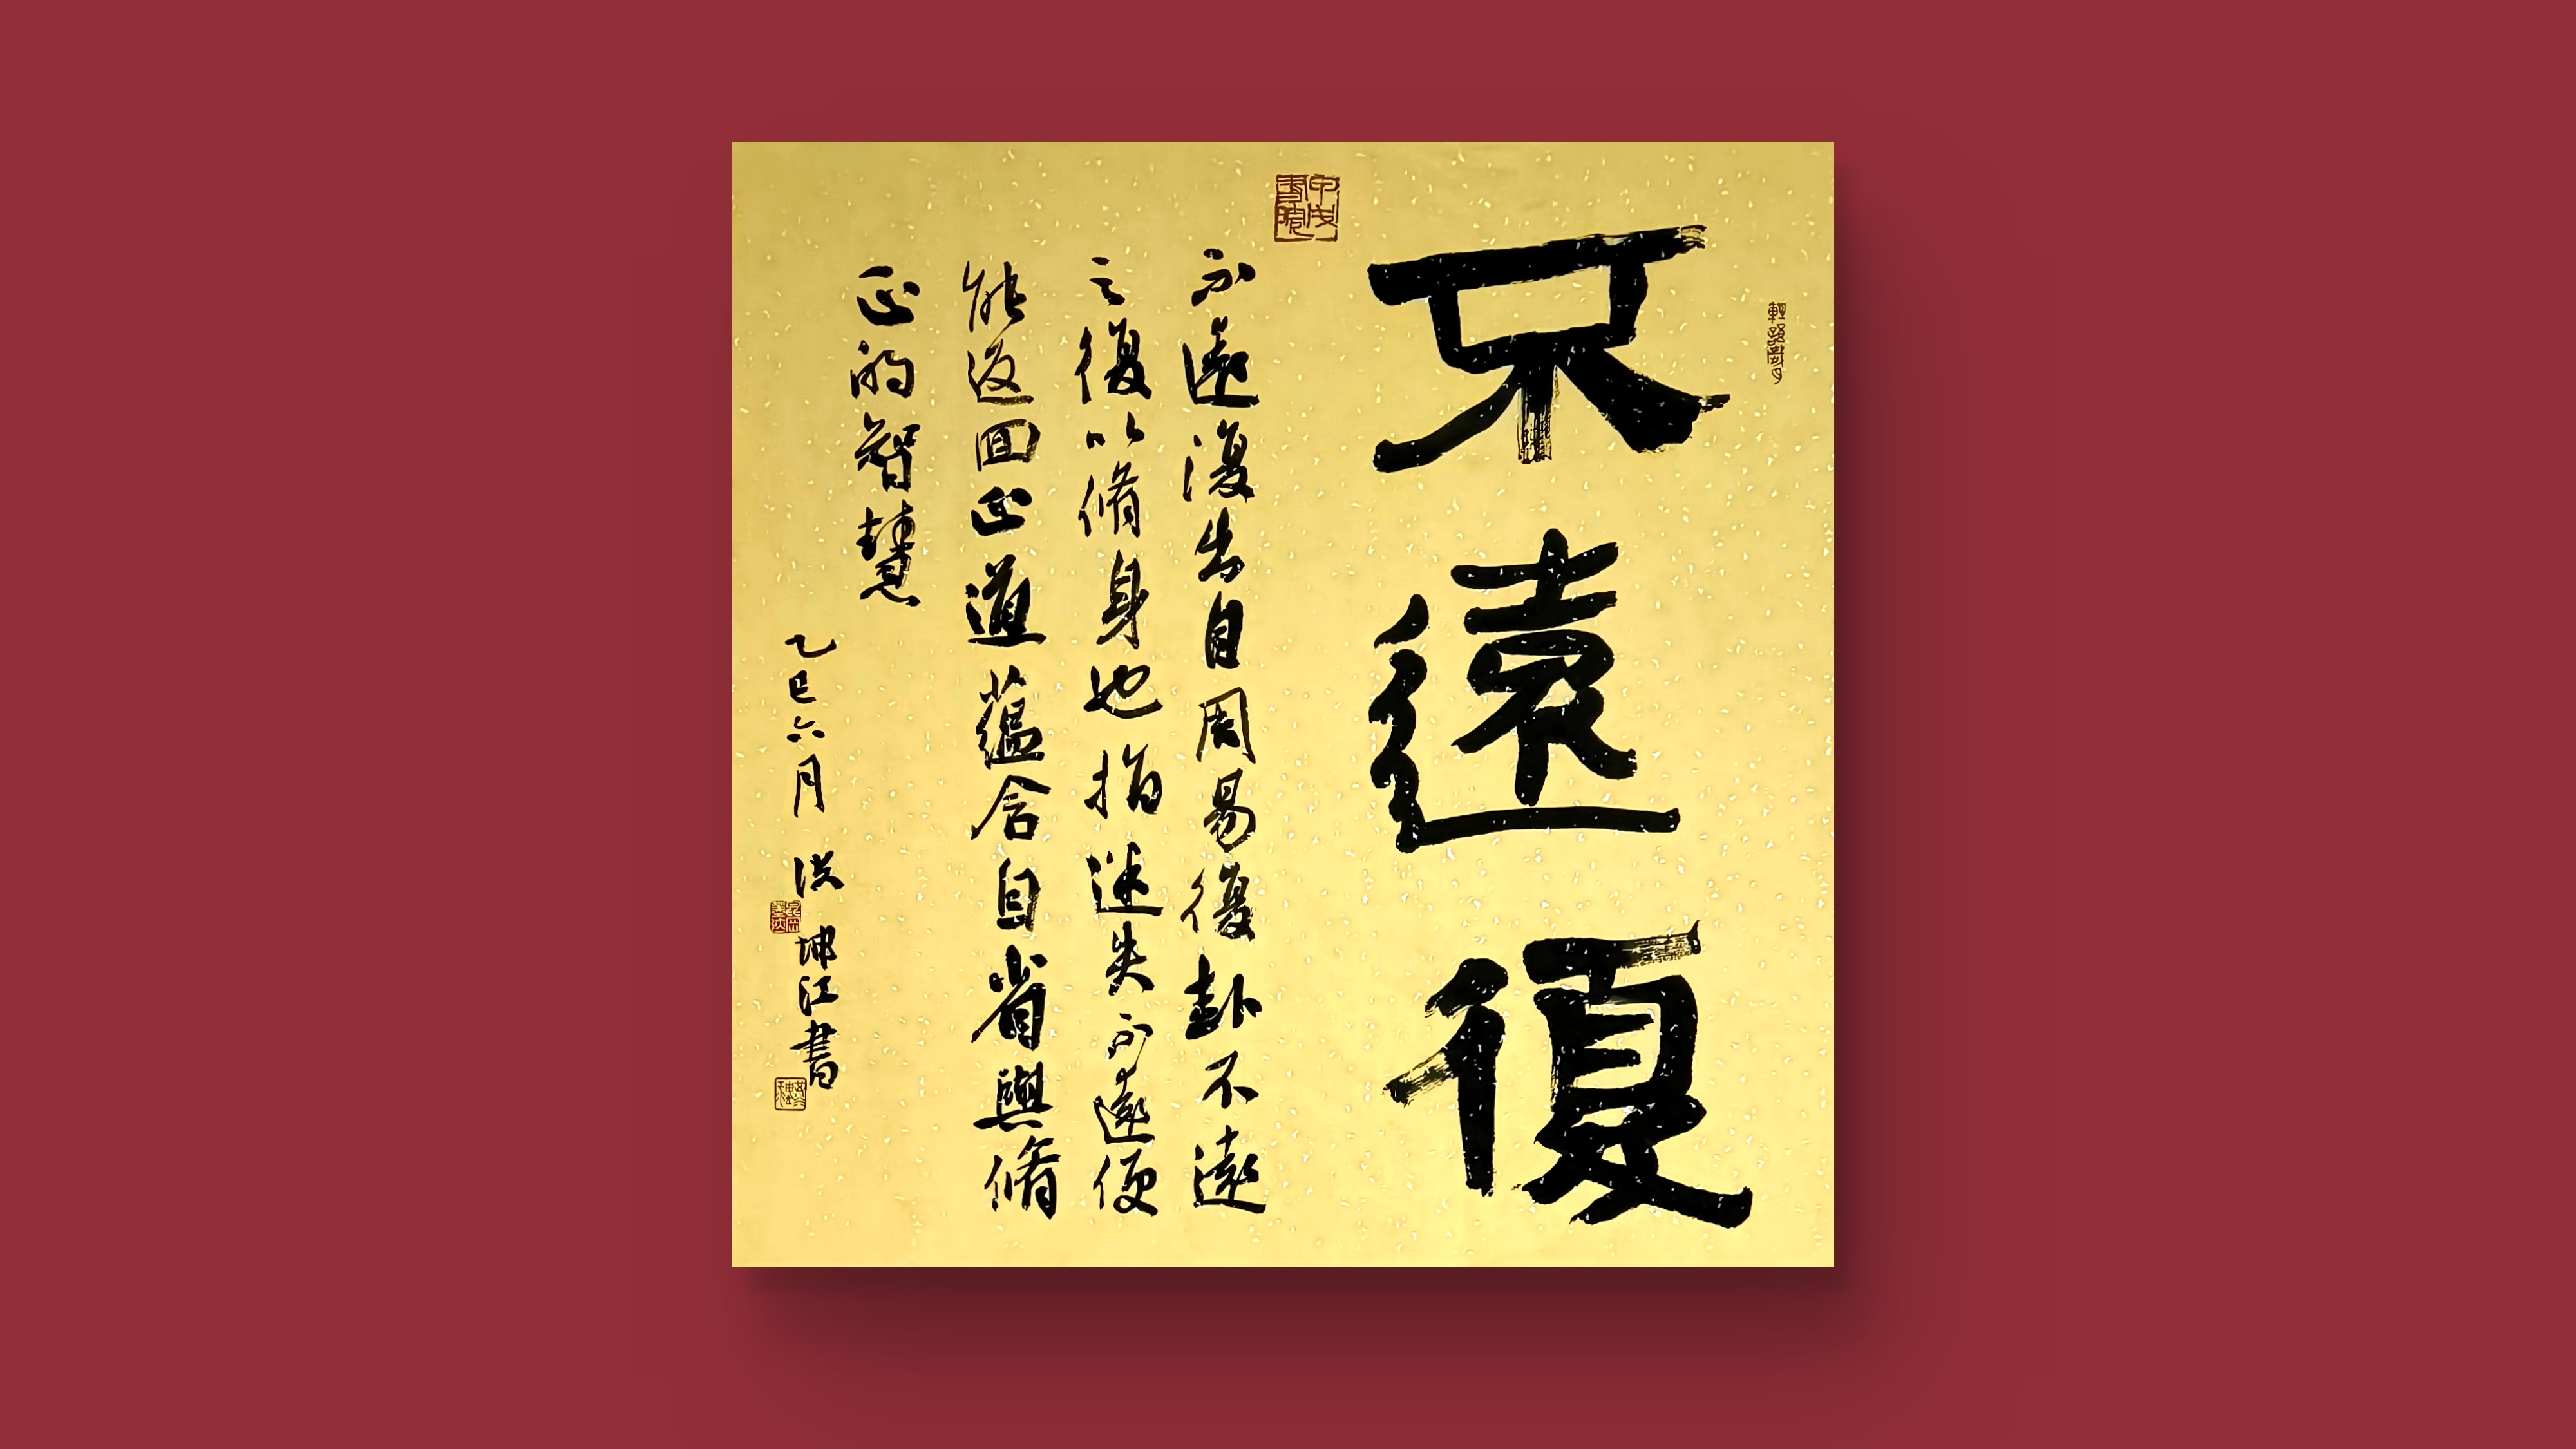 不遠復
不遠復出自周易復卦不遠
之復以脩身也指迷失不遠便
能返回正道蘊含自省與脩
正的智慧
乙巳六月 洪坤江書
甲戌書院